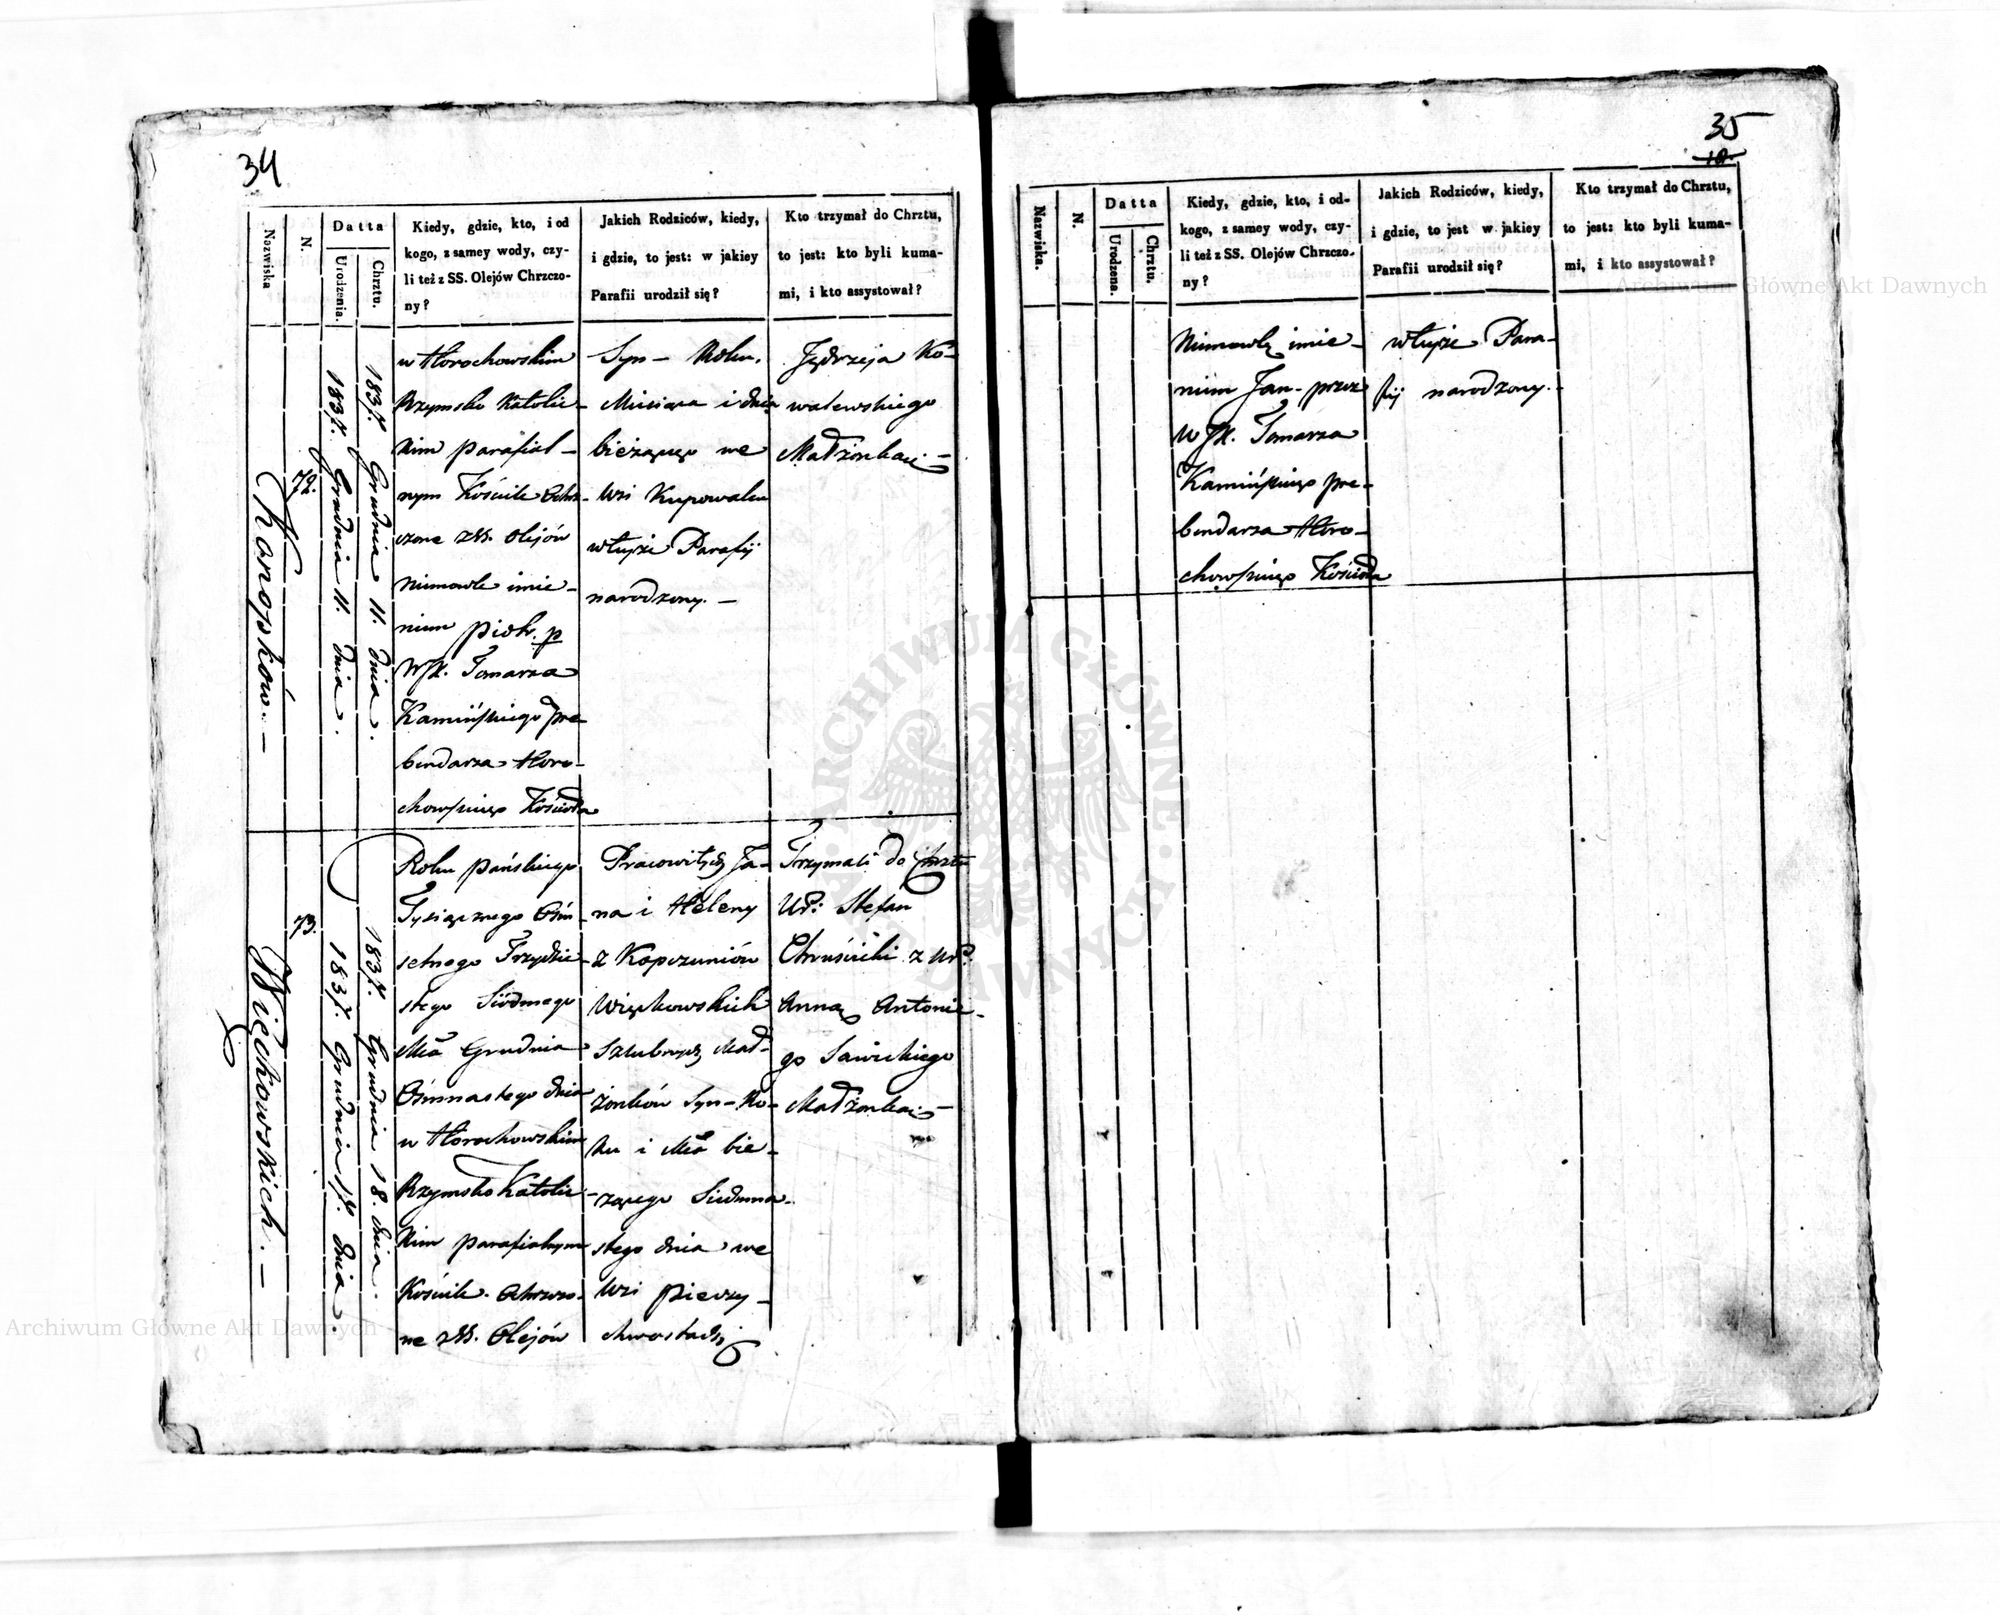 34
Nazwiska
N.
Datta
Urodzenia.
Chrztu.
Kiedy, gdzie, kto, i od
kogo, z samey wody, czy-
li też z SS. Olejów Chrzczo-
ny?
Jakich Rodziców, kiedy,
i gdzie, to jest: w jakiey
Parafii urodził się?
Kto trzymał do Chrztu,
to jest: kto byli kuma-
mi, i kto assystował?
72.
1837. Grudnia 11. dnia.
1837. Grudnia 11. dnia.
w Horochowskim
Rzymsko Katolic-
kim parafial-
nym Kościele Ochrz-
czone z SS. Olejów
Niemowle imie-
niem Piotr. p
WJX. Tomasza
Kamińskiego pre-
bendarza Horo-
chowskiego Kościoła
Syn - Roku,
Miesiąca i dnia
bieżącego we
Wsi Kupowalcu
w tejże Parafij
narodzony. -
Jędrzeja Ko-
walewskiego
Małżonka -
Więckowskich. -
73.
1837. Grudnia 17. dnia.
1837. Grudnia 18. dnia.
Roku pańskiego
Tysiącznego Ośm-
setnego Trzydzie-
stego Siódmego
Mca Grudnia
Ośmnastego dnia
w Horochowskim
Rzymsko Katolic-
kim parafialnym
Kościele Ochrzczo-
ne z SS. Olejów
Pracowitych Ja-
na i Heleny
z Kopczuniów
Więckowskich
Szlubnych Mał-
żonków Syn - Ro-
ku i Mca bie-
żącego Siedmna-
stego dnia we
Wsi Pierzy-
chwostach
Trzymali do Chrztu
Ur: Stefan
Chruścicki z Ur:
Anną Antonie-
go Sawickiego
Małżonka -
35
Nazwiska.
N.
Datta
Urodzena.
Chrztu.
Kiedy, gdzie, kto, i od-
kogo, z samey wody, czy-
li też z SS. Olejów Chrzczo-
ny?
Jakich Rodziców, kiedy,
i gdzie, to jest w jakiey
Parafii urodził się?
Kto trzymał do Chrztu,
to jest: kto byli kuma-
mi, i kto assystował?
Niemowlę imie-
niem Jan - przez
WJX. Tomasza
Kamińskiego pre-
bendarza Horo-
chowskiego Kościoła
w tejże Para-
fij narodzony. -
Archiwum Główne Akt Dawnych
Archiwum Główne Akt Dawnych
ARCHIWUM GŁÓWNE AKT DAWNYCH